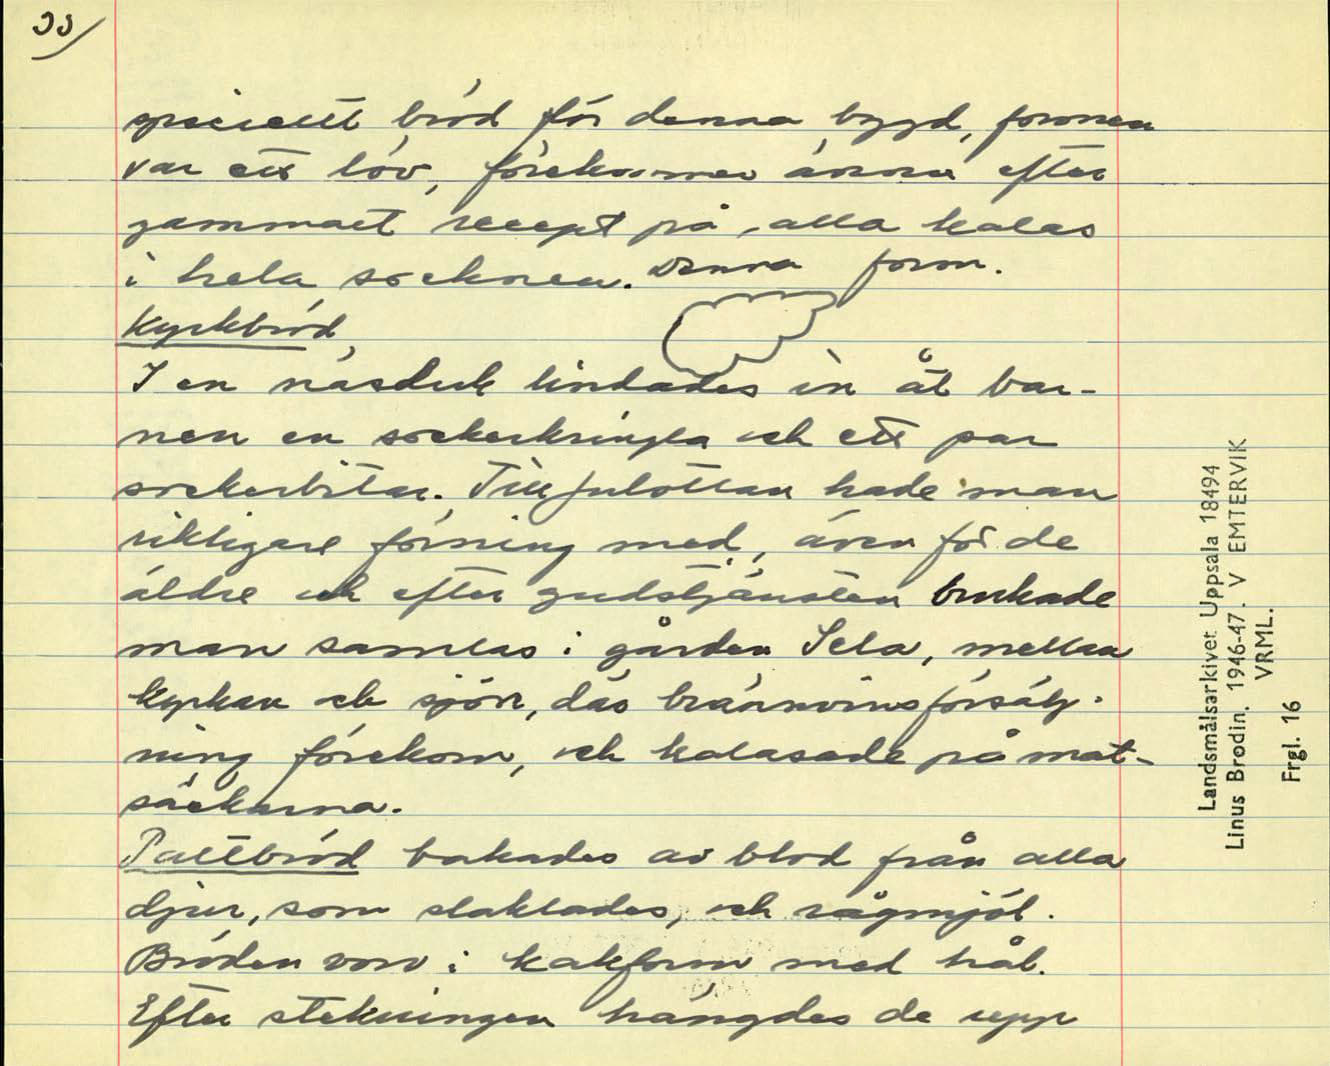 33/
speciellt bröd för denna bygd, formen
var ett löv, förekommer ännu efter
gammalt recept på alla kalas
i hela socknen. Denna form.
Kyrkbröd,
I en näsduk lindades in åt bar-
nen en sockerkringla och ett par
sockerbitar. Till julottan hade man
riktigare förning med, även för de
äldre och efter gudstjänsten brukade
man samlas i gården Sela, mellan
kyrkan och sjön, däs brännvinsförsälj-
ning förekom, och kalasade på mat-
säckarna.
Paltbröd bakades av blod från alla
djur, som slaktades, och rågmjöl.
Bröden voro i kakform med hål.
Efter stekningen hängdes de upp
Landsmålsarkivet Uppsala 18494
Linus Brodin. 1946-47. V EMTERVIK
VRML.
Frgl. 16